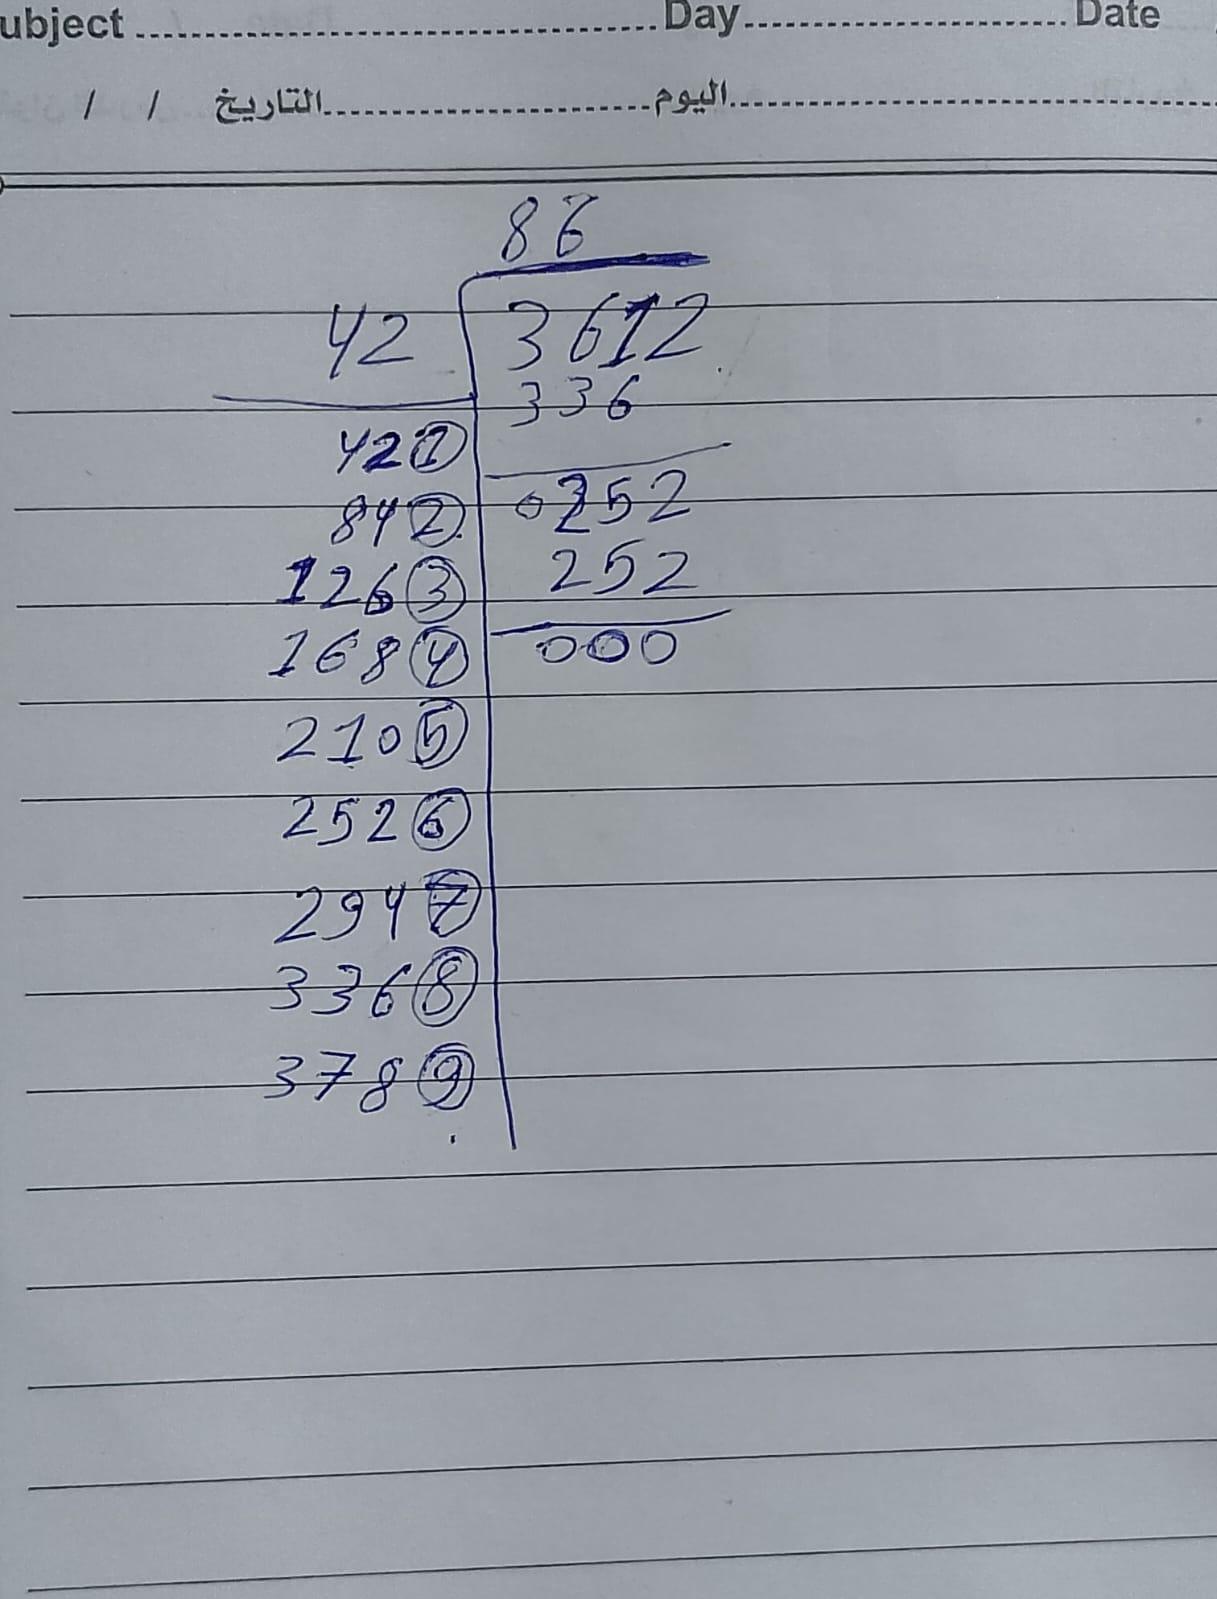 ubject ........ Day ........ Date
/ / التاريخ ........ اليوم ........
86
42 3612
336
42 1
0252
84 2
252
126 3
000
168 4
210 5
252 6
294 7
336 8
378 9